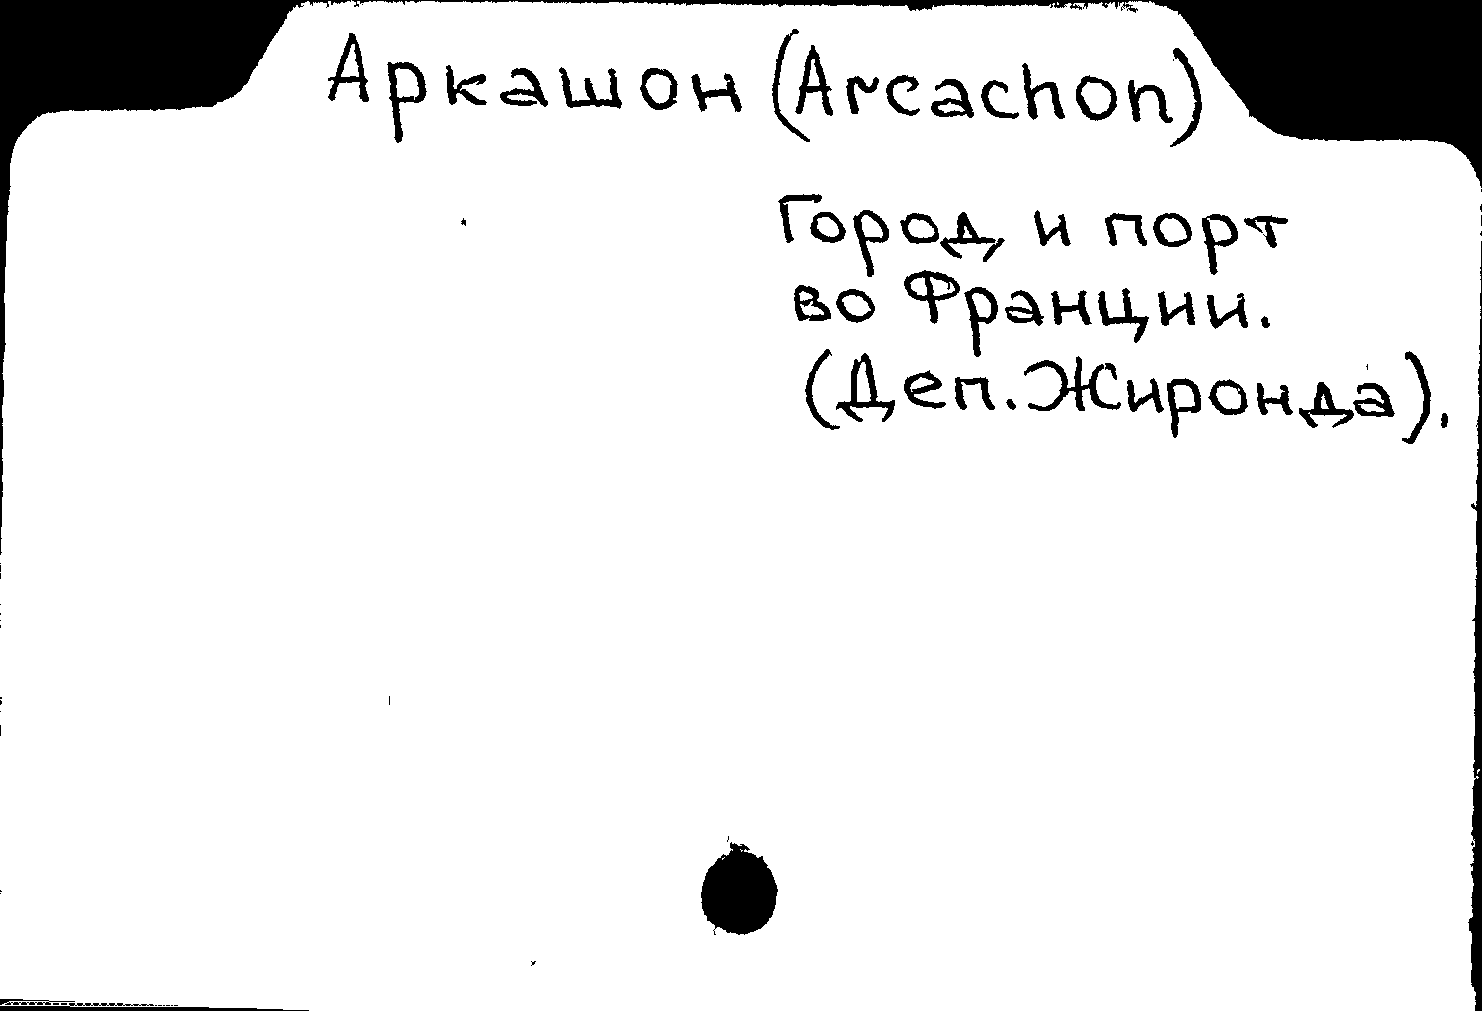 Аркашон (Arcachon)
Город и порт
во Франции.
(Деп. Жиронда).